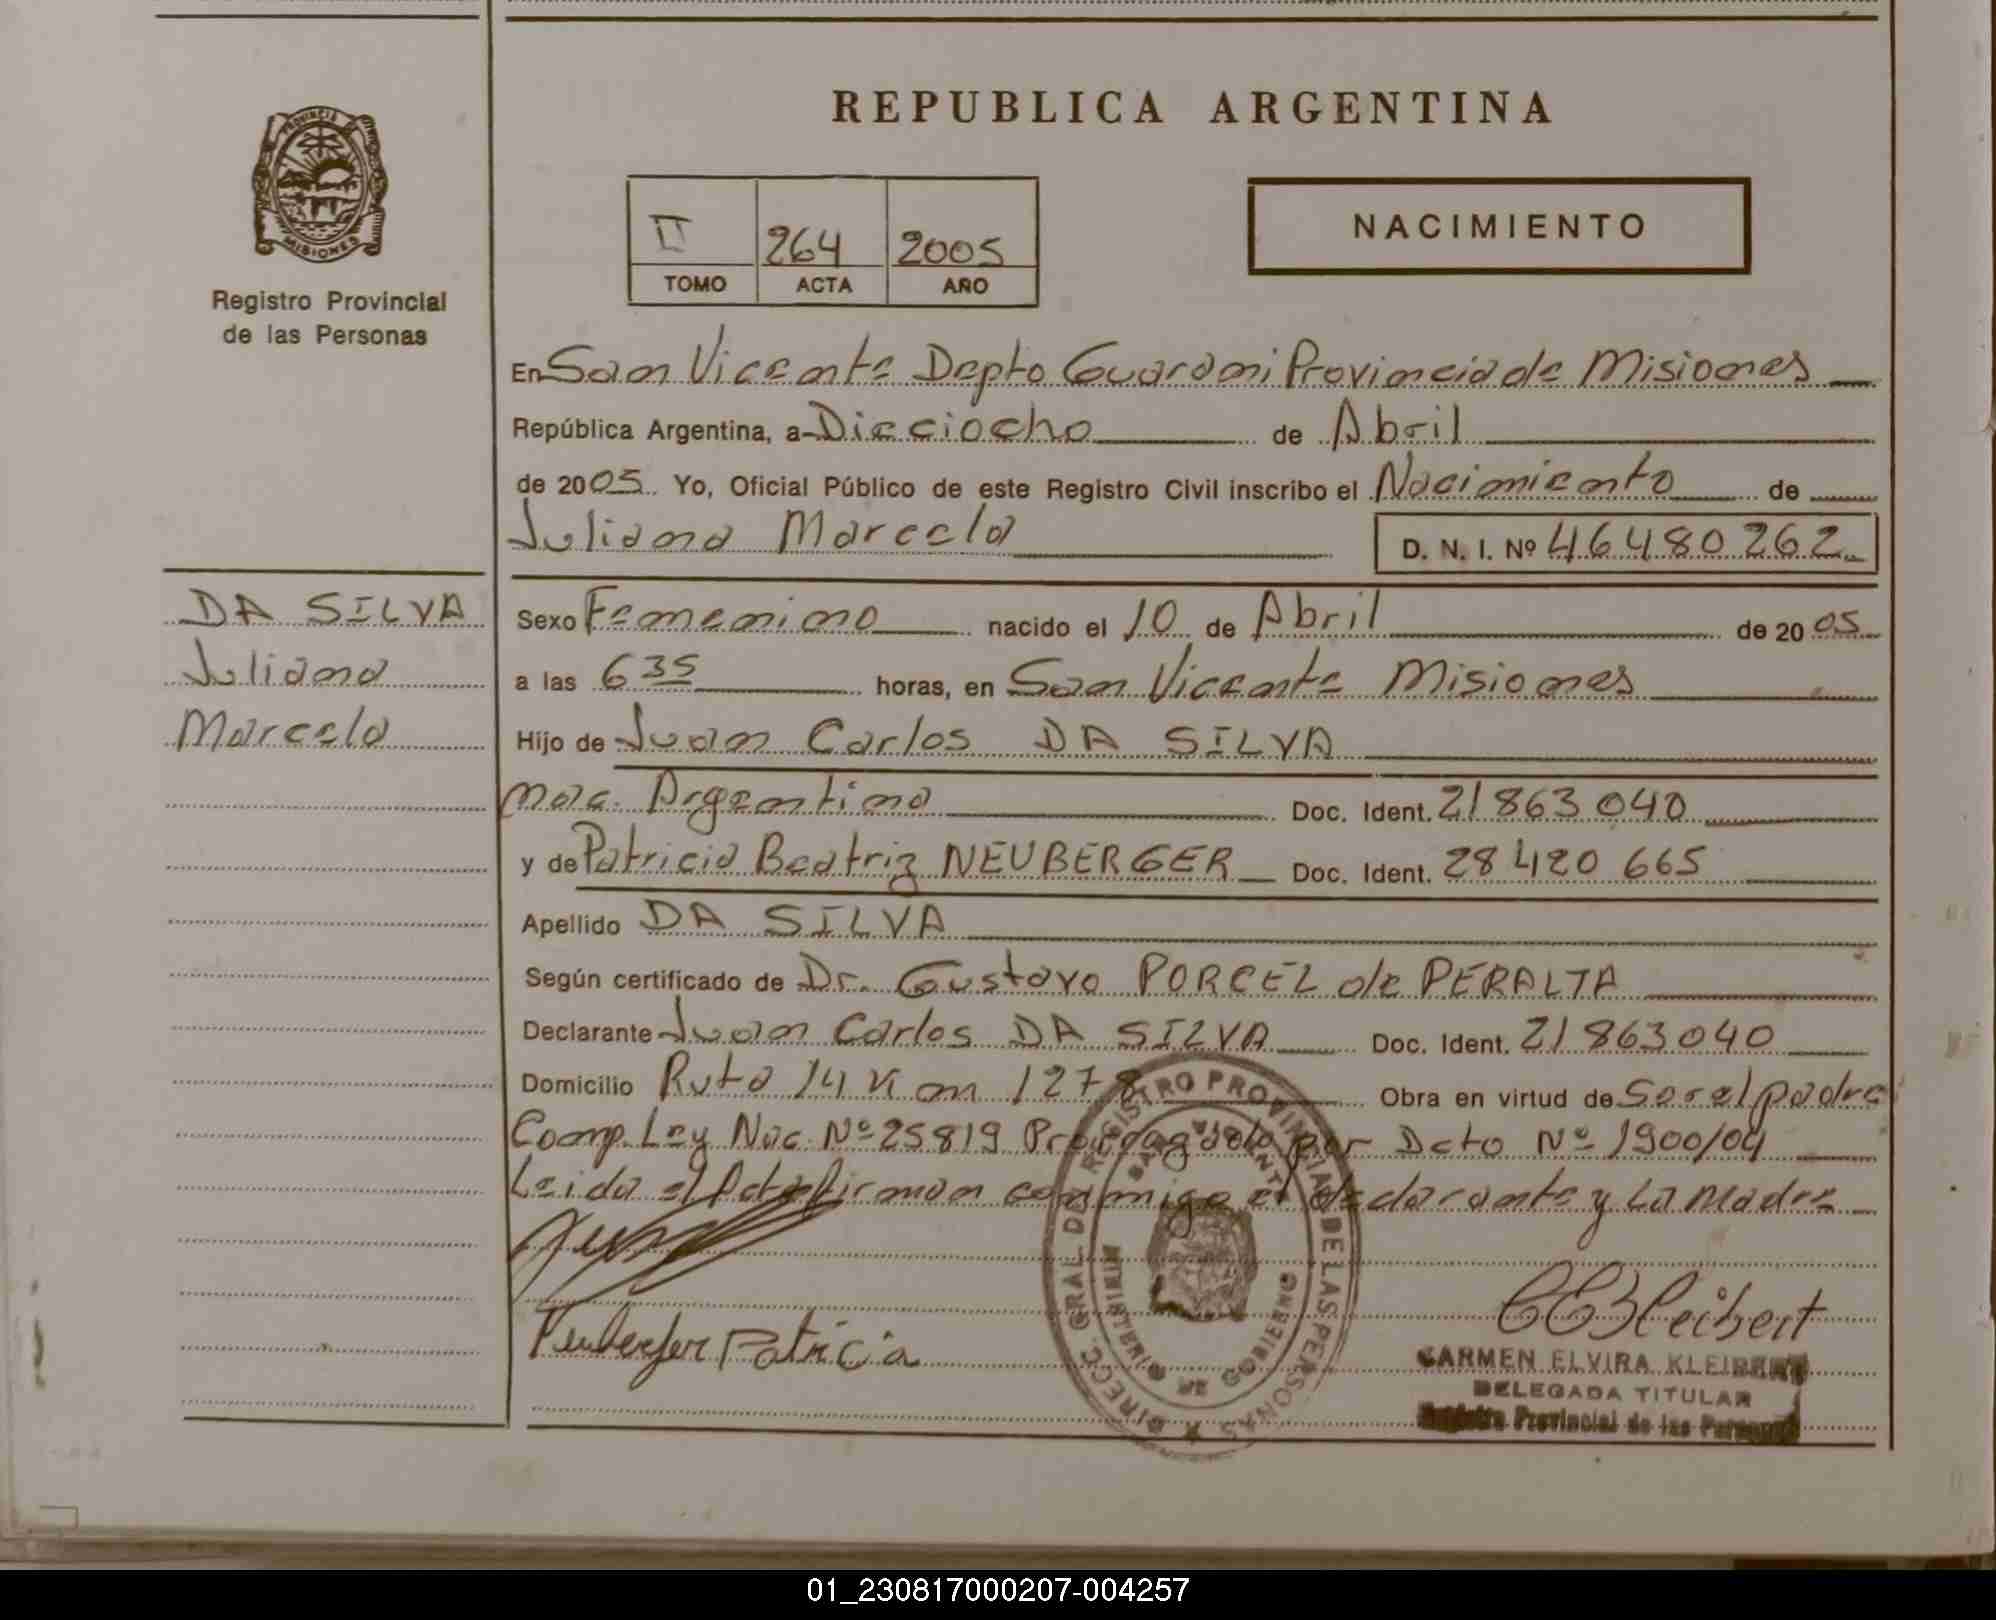 PROVINCIA DE
MISIONES
Registro Provincial
de las Personas
DA SILVA
Juliana
Marcela
REPUBLICA ARGENTINA
II 264 2005
TOMO ACTA AÑO
NACIMIENTO
En San Vicente Depto Guarani Provincia de Misiones
República Argentina, a Dieciocho de Abril
de 2005 Yo, Oficial Público de este Registro Civil inscribo el Nacimiento de
Juliana Marcela D. N. I. Nº 46480262
Sexo Femenino nacido el 10 de Abril de 2005
a las 6 35 horas, en San Vicente Misiones
Hijo de Juan Carlos DA SILVA
nac. Argentina Doc. Ident. 21863040
y de Patricia Beatriz NEUBERGER Doc. Ident. 28420665
Apellido DA SILVA
Según certificado de Dr. Gustavo PORCEL de PERALTA
Declarante Juan Carlos DA SILVA Doc. Ident. 21863040
Domicilio Ruta 14 Km 1278 Obra en virtud de Ser el padre
Comp. Ley Nac. Nº 25819 Prorrogado por Dcto Nº 1900/04
Leida el Acta firman conmigo el declarante y La Madre
Neuberger Patricia
DIRECC. GRAL. DEL REGISTRO PROVINCIAL DE LAS PERSONAS
MINISTERIO DE GOBIERNO
CARMEN ELVIRA KLEIBERT
DELEGADA TITULAR
Registro Provincial de las Personas
01_230817000207-004257